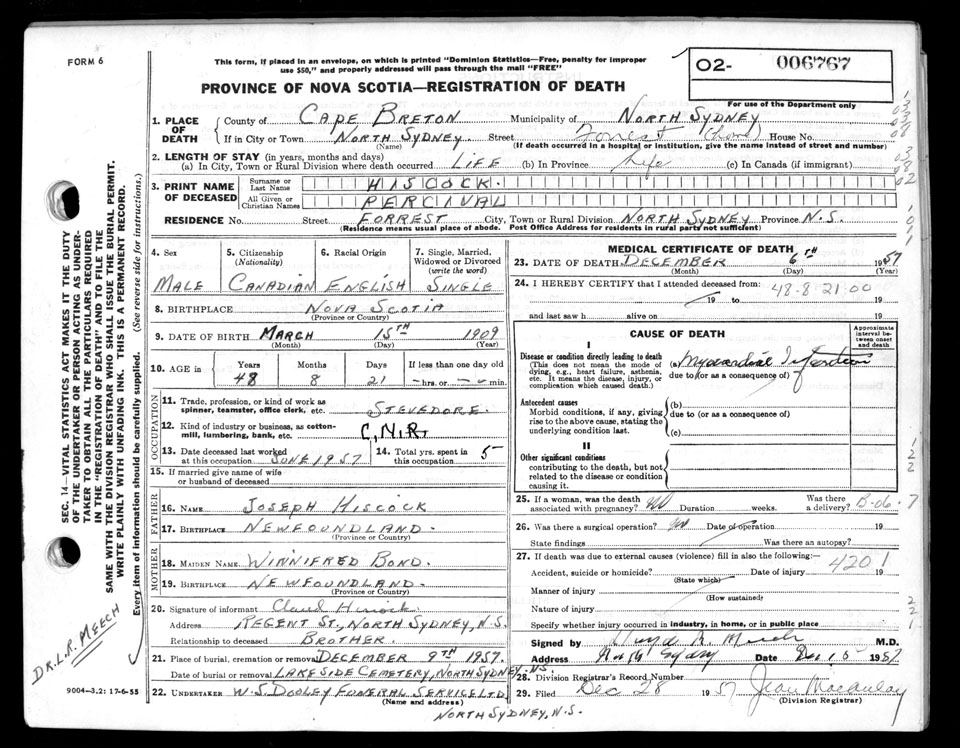 FORM 6
This form, if placed in an envelope, on which is printed "Dominion Statistics—Free, penalty for improper
use $50," and properly addressed will pass through the mail "FREE"
O2- 006767
For use of the Department only
PROVINCE OF NOVA SCOTIA—REGISTRATION OF DEATH
1. PLACE OF DEATH
County of CAPE BRETON Municipality of NORTH SYDNEY
If in City or Town NORTH SYDNEY. Street Forrest (home) House No.
(Name) (If death occurred in a hospital or institution, give the name instead of street and number)
2. LENGTH OF STAY (in years, months and days)
(a) In City, Town or Rural Division where death occurred LIFE (b) In Province Life (c) In Canada (if immigrant)
3. PRINT NAME OF DECEASED
Surname or Last Name HISCOCK.
All Given or Christian Names PERCIVAL
RESIDENCE No. Street FORREST City, Town or Rural Division NORTH SYDNEY Province N.S.
(Residence means usual place of abode. Post Office Address for residents in rural parts not sufficient)
4. Sex MALE
5. Citizenship (Nationality) CANADIAN
6. Racial Origin ENGLISH
7. Single, Married, Widowed or Divorced (write the word) SINGLE
8. BIRTHPLACE NOVA SCOTIA
(Province or Country)
9. DATE OF BIRTH MARCH 15TH 1909
(Month) (Day) (Year)
10. AGE in Years 48 Months 8 Days 21 If less than one day old — hrs. or — min.
OCCUPATION
11. Trade, profession, or kind of work as spinner, teamster, office clerk, etc. STEVEDORE.
12. Kind of industry or business, as cotton-mill, lumbering, bank, etc. C.N.R.
13. Date deceased last worked at this occupation JUNE 1957
14. Total yrs. spent in this occupation 5
15. If married give name of wife or husband of deceased
FATHER
16. NAME JOSEPH HISCOCK
17. BIRTHPLACE NEWFOUNDLAND.
(Province or Country)
MOTHER
18. MAIDEN NAME WINNIFRED BOND.
19. BIRTHPLACE NEWFOUNDLAND.
(Province or Country)
20. Signature of informant Claud Hiscock
Address REGENT ST., NORTH SYDNEY, N.S.
Relationship to deceased BROTHER.
21. Place of burial, cremation or removal DECEMBER 9TH 1957.
Date of burial or removal LAKESIDE CEMETERY, NORTH SYDNEY, N.S.
22. UNDERTAKER W.S. DOOLEY FUNERAL SERVICE LTD.
(Name and address)
NORTH SYDNEY, N.S.
MEDICAL CERTIFICATE OF DEATH
23. DATE OF DEATH DECEMBER 6TH 1957
(Month) (Day) (Year)
24. I HEREBY CERTIFY that I attended deceased from:
48-8-21-00
19 to 19
and last saw h alive on 19
CAUSE OF DEATH
Approximate interval between onset and death
I
Disease or condition directly leading to death
(This does not mean the mode of dying, e.g., heart failure, asthenia, etc. It means the disease, injury, or complication which caused death.)
(a) Myocardial Infarction
due to (or as a consequence of)
Antecedent causes
Morbid conditions, if any, giving rise to the above cause, stating the underlying condition last.
(b)
due to (or as a consequence of)
(c)
II
Other significant conditions
contributing to the death, but not related to the disease or condition causing it.
25. If a woman, was the death associated with pregnancy? no Duration weeks. Was there a delivery? B-06-7
26. Was there a surgical operation? no Date of operation 19
State findings Was there an autopsy?
27. If death was due to external causes (violence) fill in also the following:
4201
Accident, suicide or homicide? Date of injury 19
(State which)
Manner of injury
(How sustained)
Nature of injury
Specify whether injury occurred in industry, in home, or in public place
Signed by M.D.
Address North Sydney Date Dec 15 1957
28. Division Registrar's Record Number
29. Filed Dec 28 1957 Jean Macaulay
(Division Registrar)
SEC. 14—VITAL STATISTICS ACT MAKES IT THE DUTY
OF THE UNDERTAKER OR PERSON ACTING AS UNDER-
TAKER TO OBTAIN ALL THE PARTICULARS REQUIRED
IN THE "REGISTRATION OF DEATH" AND TO FILE THE
SAME WITH THE DIVISION REGISTRAR WHO SHALL ISSUE THE BURIAL PERMIT.
WRITE PLAINLY WITH UNFADING INK. THIS IS A PERMANENT RECORD.
Every item of information should be carefully supplied. (See reverse side for instructions.)
DR. L.R. MEECH
9004—3.2: 17-6-55